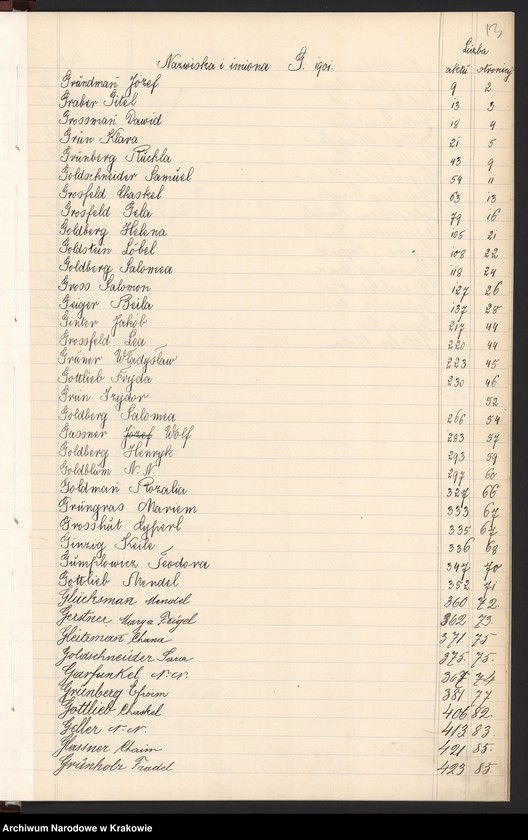 13
Liczba
Nazwiska i imiona G. 1901. aktu stronicy
Gründmań Józef 9 2
Graber Gitel 13 3
Grossmań Dawid 18 4
Grün Klara 21 5
Grünberg Rüchla 43 9
Goldschneider Samuel 54 11
Grosfeld Chaskel 63 13
Grosfeld Gela 79 16
Goldberg Helena 105 21
Goldstein Löbel 108 22
Goldberg Salomea 118 24
Gross Salomon 127 26
Geiger Beila 137 28
Ginter Jakób 217 44
Grossfeld Lea 220 44
Grüner Władysław 223 45
Gottlieb Fryda 230 46
Grün Izydor 52
Goldberg Salomea 266 54
Gassner Józef Wolf 283 57
Goldberg Henryk 293 59
Goldblüm N. N. 297 60
Goldmań Rozalia 327 66
Grüngras Mariem 333 67
Grosshüt Cyperl 335 67
Ginzig Keile 336 68
Gumplowicz Teodora 347 70
Gottlieb Mendel 352 71
Glücksman Mendel 360 72
Gerstner Marya Feigel 362 73
Gleitzman Chana 371 75
Goldschneider Sara 375 75.
Garfunkel N. N. 367 74
Grünberg Efroim 381 77
Gottlieb Chaskel 406 82.
Geller N. N. 413 83.
Glassner Chaim 421 85.
Grünholz Fradel 423 85.
Archiwum Narodowe w Krakowie